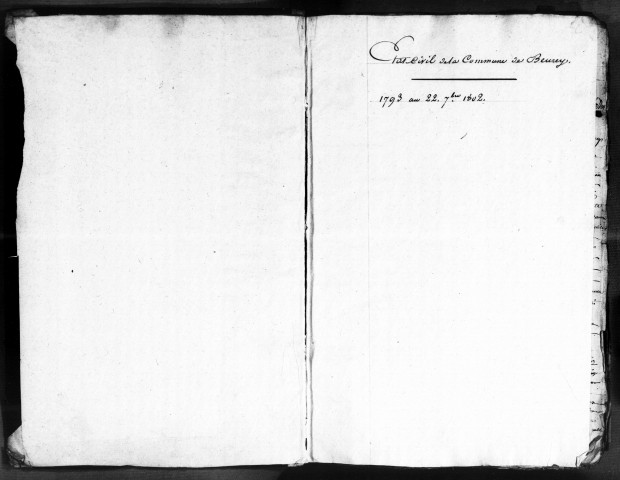 Etat Civil de la Commune de Beurey.
1793 au 22. 7bre 1802.